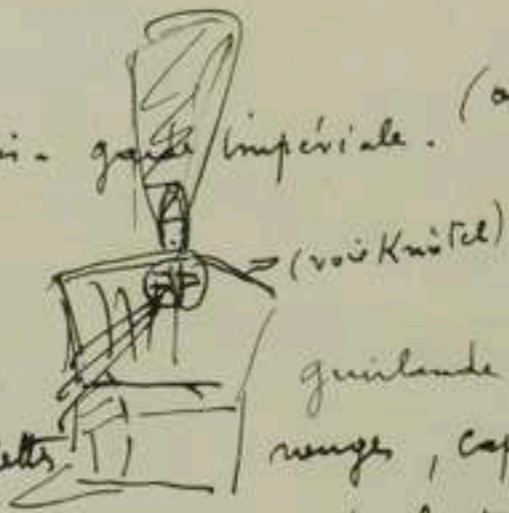 garde impériale. (
(voir Knötel)
guirlande
rouges, cap